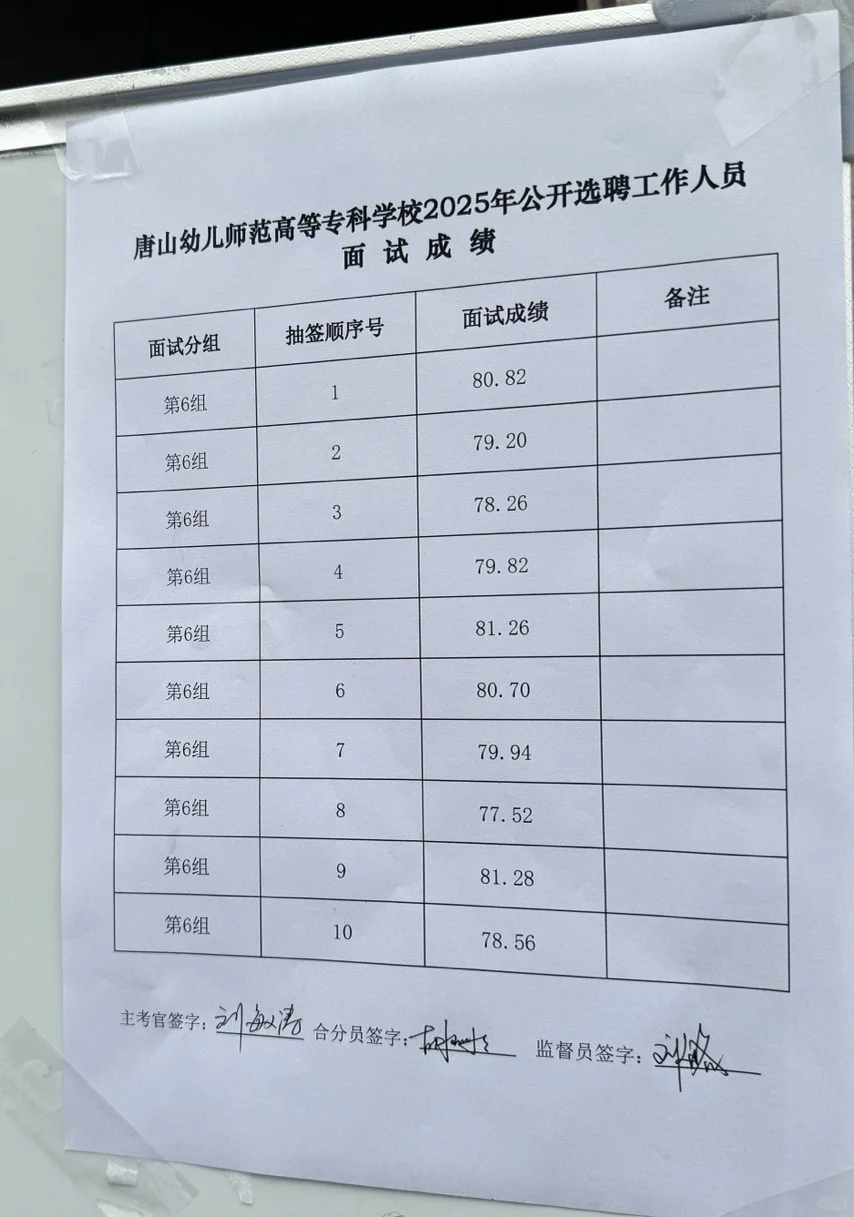 唐山幼儿师范高等专科学校2025年公开选聘工作人员
面试成绩
面试分组 抽签顺序号 面试成绩 备注
第6组 1 80.82
第6组 2 79.20
第6组 3 78.26
第6组 4 79.82
第6组 5 81.26
第6组 6 80.70
第6组 7 79.94
第6组 8 77.52
第6组 9 81.28
第6组 10 78.56
主考官签字： 合分员签字： 监督员签字：